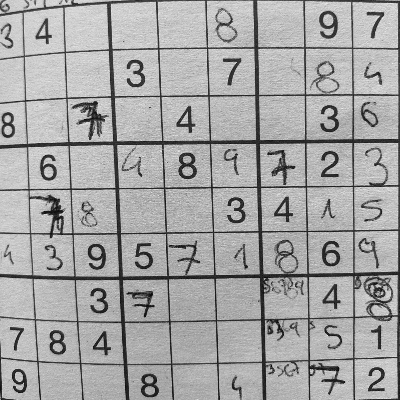 3 4 8 9 7
3 7 8 4
8 7 4 3 6
6 4 8 9 7 2 3
7 8 3 4 1 5
4 3 9 5 7 1 8 6 9
3 7 4 8
7 8 4 5 1
9 8 4 7 2